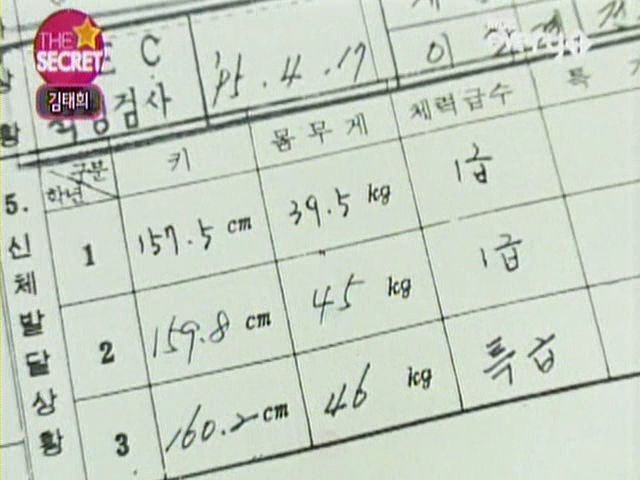 THE
SECRET
김태희
C
'95.4.17
검사
구분
학년
키
몸무게
체력급수
특
5.
신체발달상황
1
157.5 cm
39.5 kg
1급
2
159.8 cm
45 kg
1급
3
160.2 cm
46 kg
특급